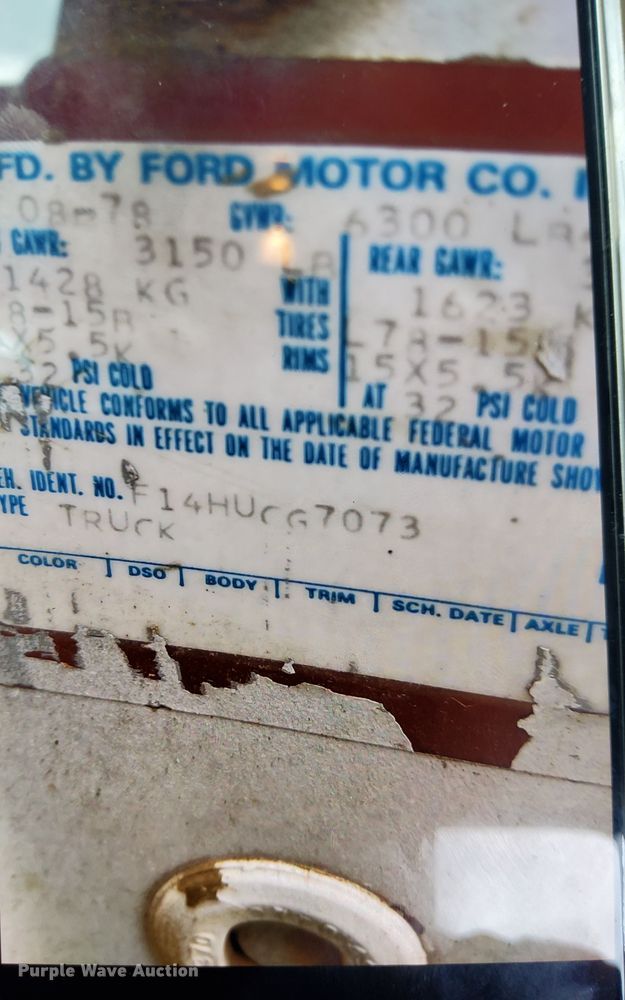 FD. BY FORD MOTOR CO.
08-78 GVWR: 6300 LB
GAWR: 3150 LB REAR GAWR:
1428 KG WITH 1623 K
8-15B TIRES L78-15
X5.5K RIMS 15X5.5K
32 PSI COLD AT 32 PSI COLD
VEHICLE CONFORMS TO ALL APPLICABLE FEDERAL MOTOR
STANDARDS IN EFFECT ON THE DATE OF MANUFACTURE SHO
EH. IDENT. NO. F14HUCG7073
YPE TRUCK
COLOR DSO BODY TRIM SCH. DATE AXLE
Purple Wave Auction